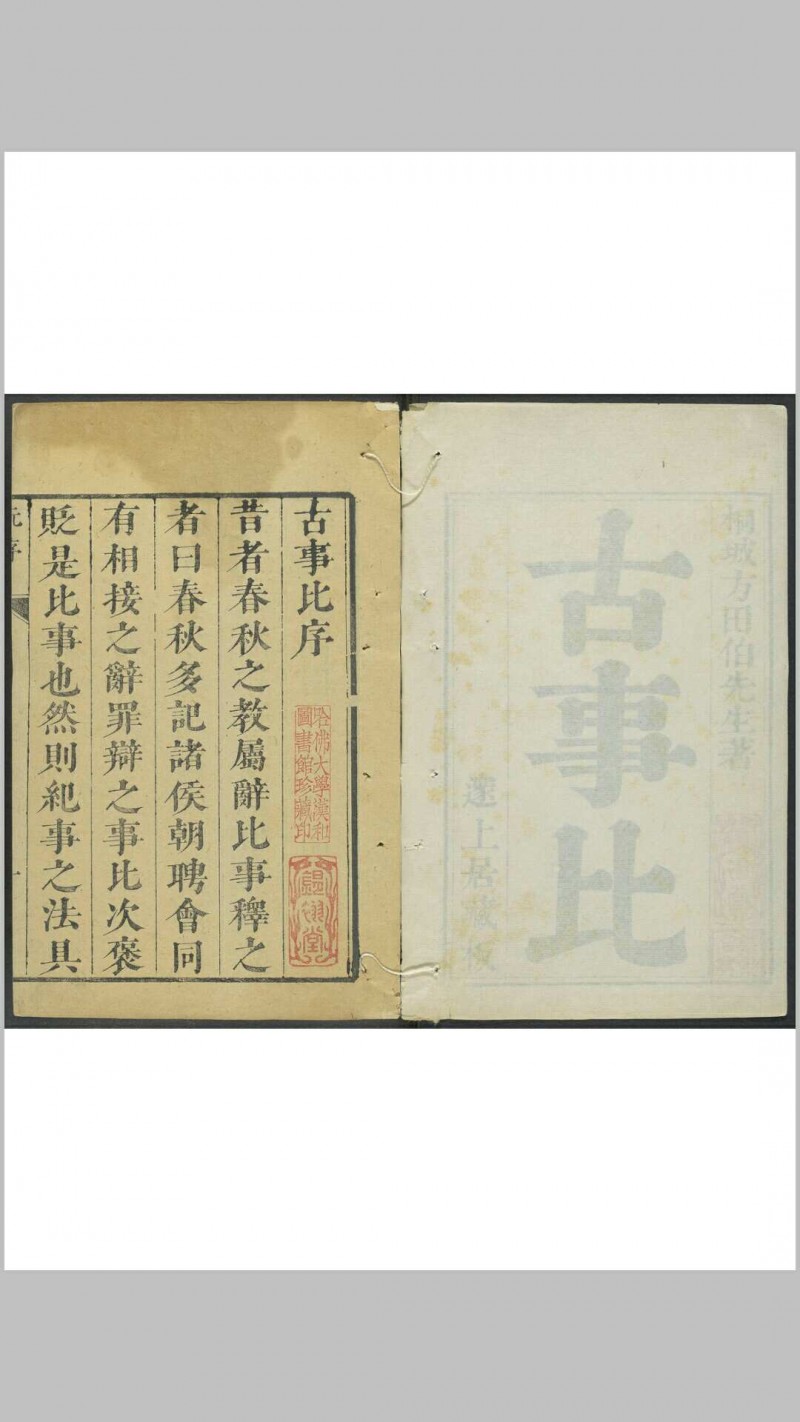 桐城方田伯先生著
古事比
上居藏板
古事比序
哈佛大學漢和
圖書館珍藏印
昔者春秋之教屬辭比事釋之
者曰春秋多記諸侯朝聘會同
有相接之辭罪辯之事比次褒
貶是比事也然則紀事之法具
序
一